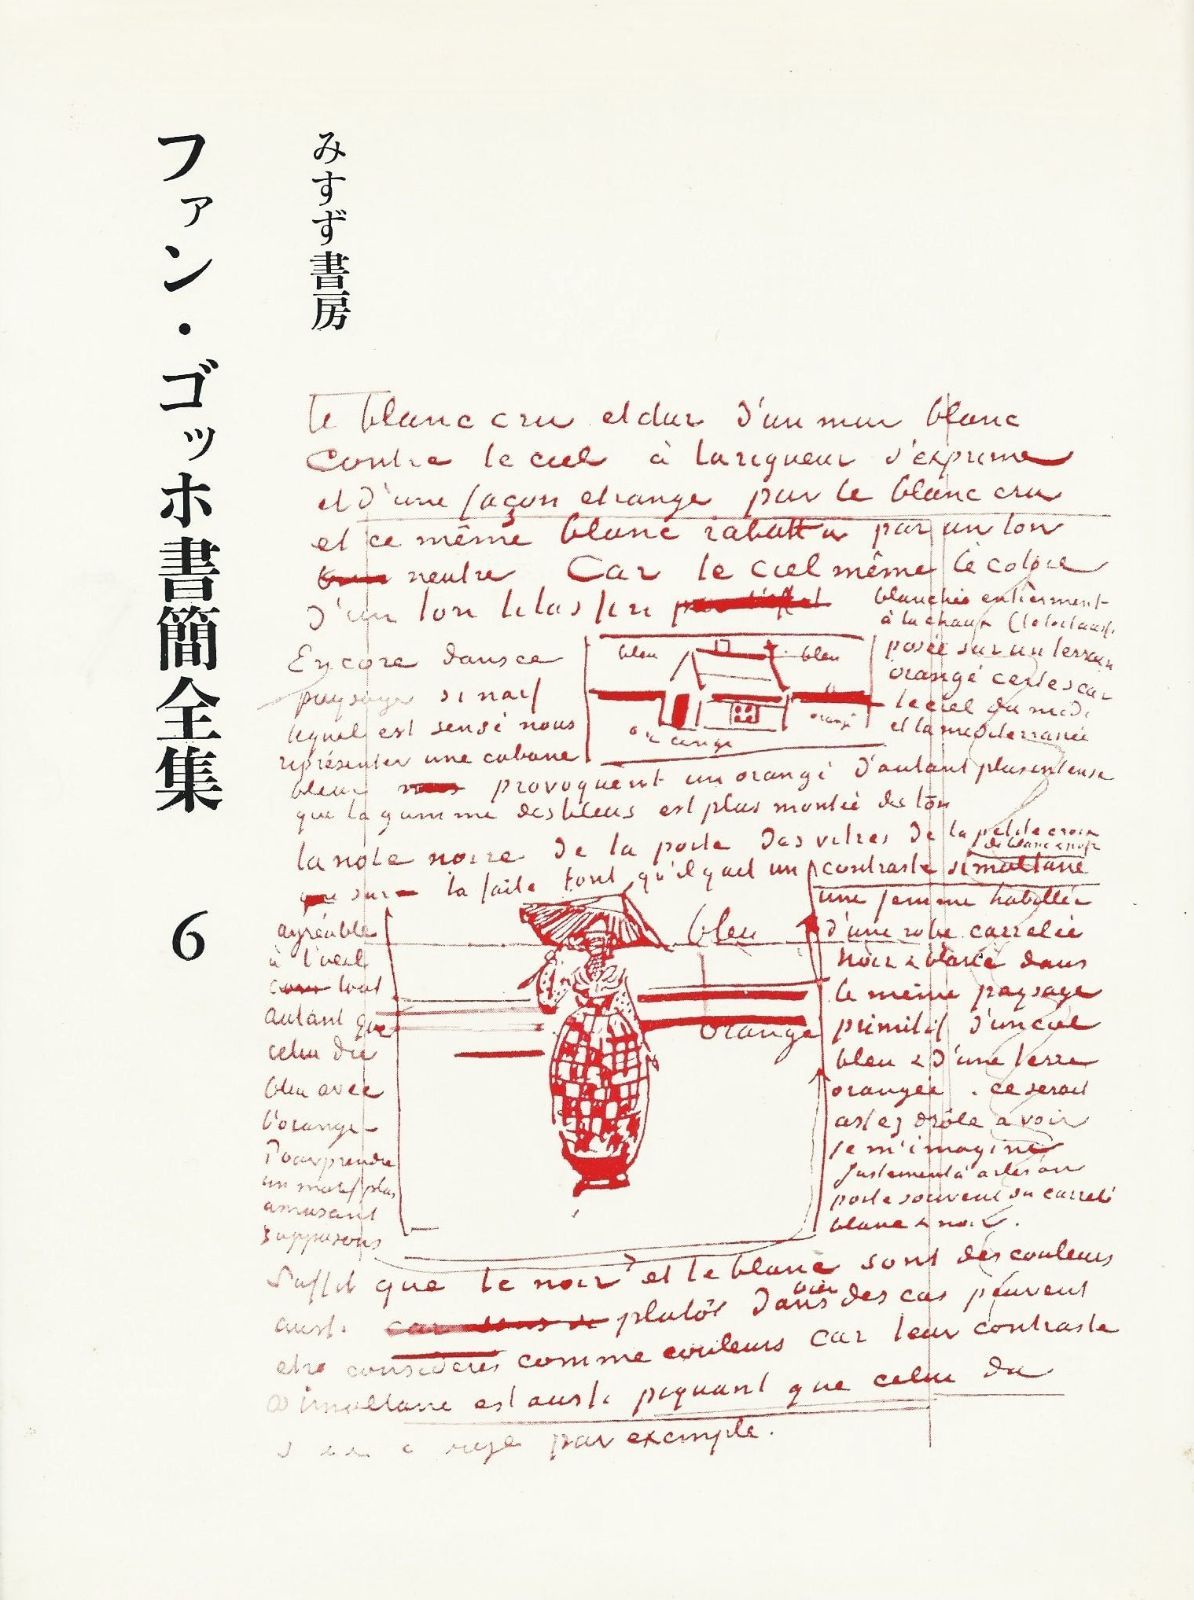 みすず書房
ファン・ゴッホ書簡全集 6
le blanc cru et dur d'un mur blanc
contre le ciel à la rigueur s'exprime
et d'une façon etrange par le blanc cru
et ce même blanc rabattu par un ton
neutre Car le ciel même le colore
d'un ton lilas fin
blanchie entièrement
à la chaux (le toit aussi)
Encore dans ce
paysage si naif
lequel est sensé nous
représenter une cabane
bleu
bleu
orange
orangé
posée sur un terrain
orangé certes car
le ciel du midi
et la mediterranée
bleue provoquent un orangé d'autant plus intense
que la gamme des bleus est plus montée de ton
la note noire de la porte des vitres de la petite croix
de blanc & noir
sur le faîte font qu'il y ait un contraste simultané
agréable
à l'oeil
tout
autant que
celui du
bleu avec
l'orangé
Pour prendre
un motif plus
amusant
supposons
bleu
orange
une femme habillée
d'une robe carrelée
noir & blanc dans
le même paysage
primitif d'un ciel
bleu & d'une terre
orangée. ce serait
assez drôle à voir
je m'imagine
justement à arles on
porte souvent du carrelé
blanc & noir.
Suffit que le noir et le blanc sont des couleurs
aussi. plutôt dans bien des cas peuvent
etre considerés comme couleurs car leur contraste
simultané est aussi piquant que celui du
rouge par exemple.